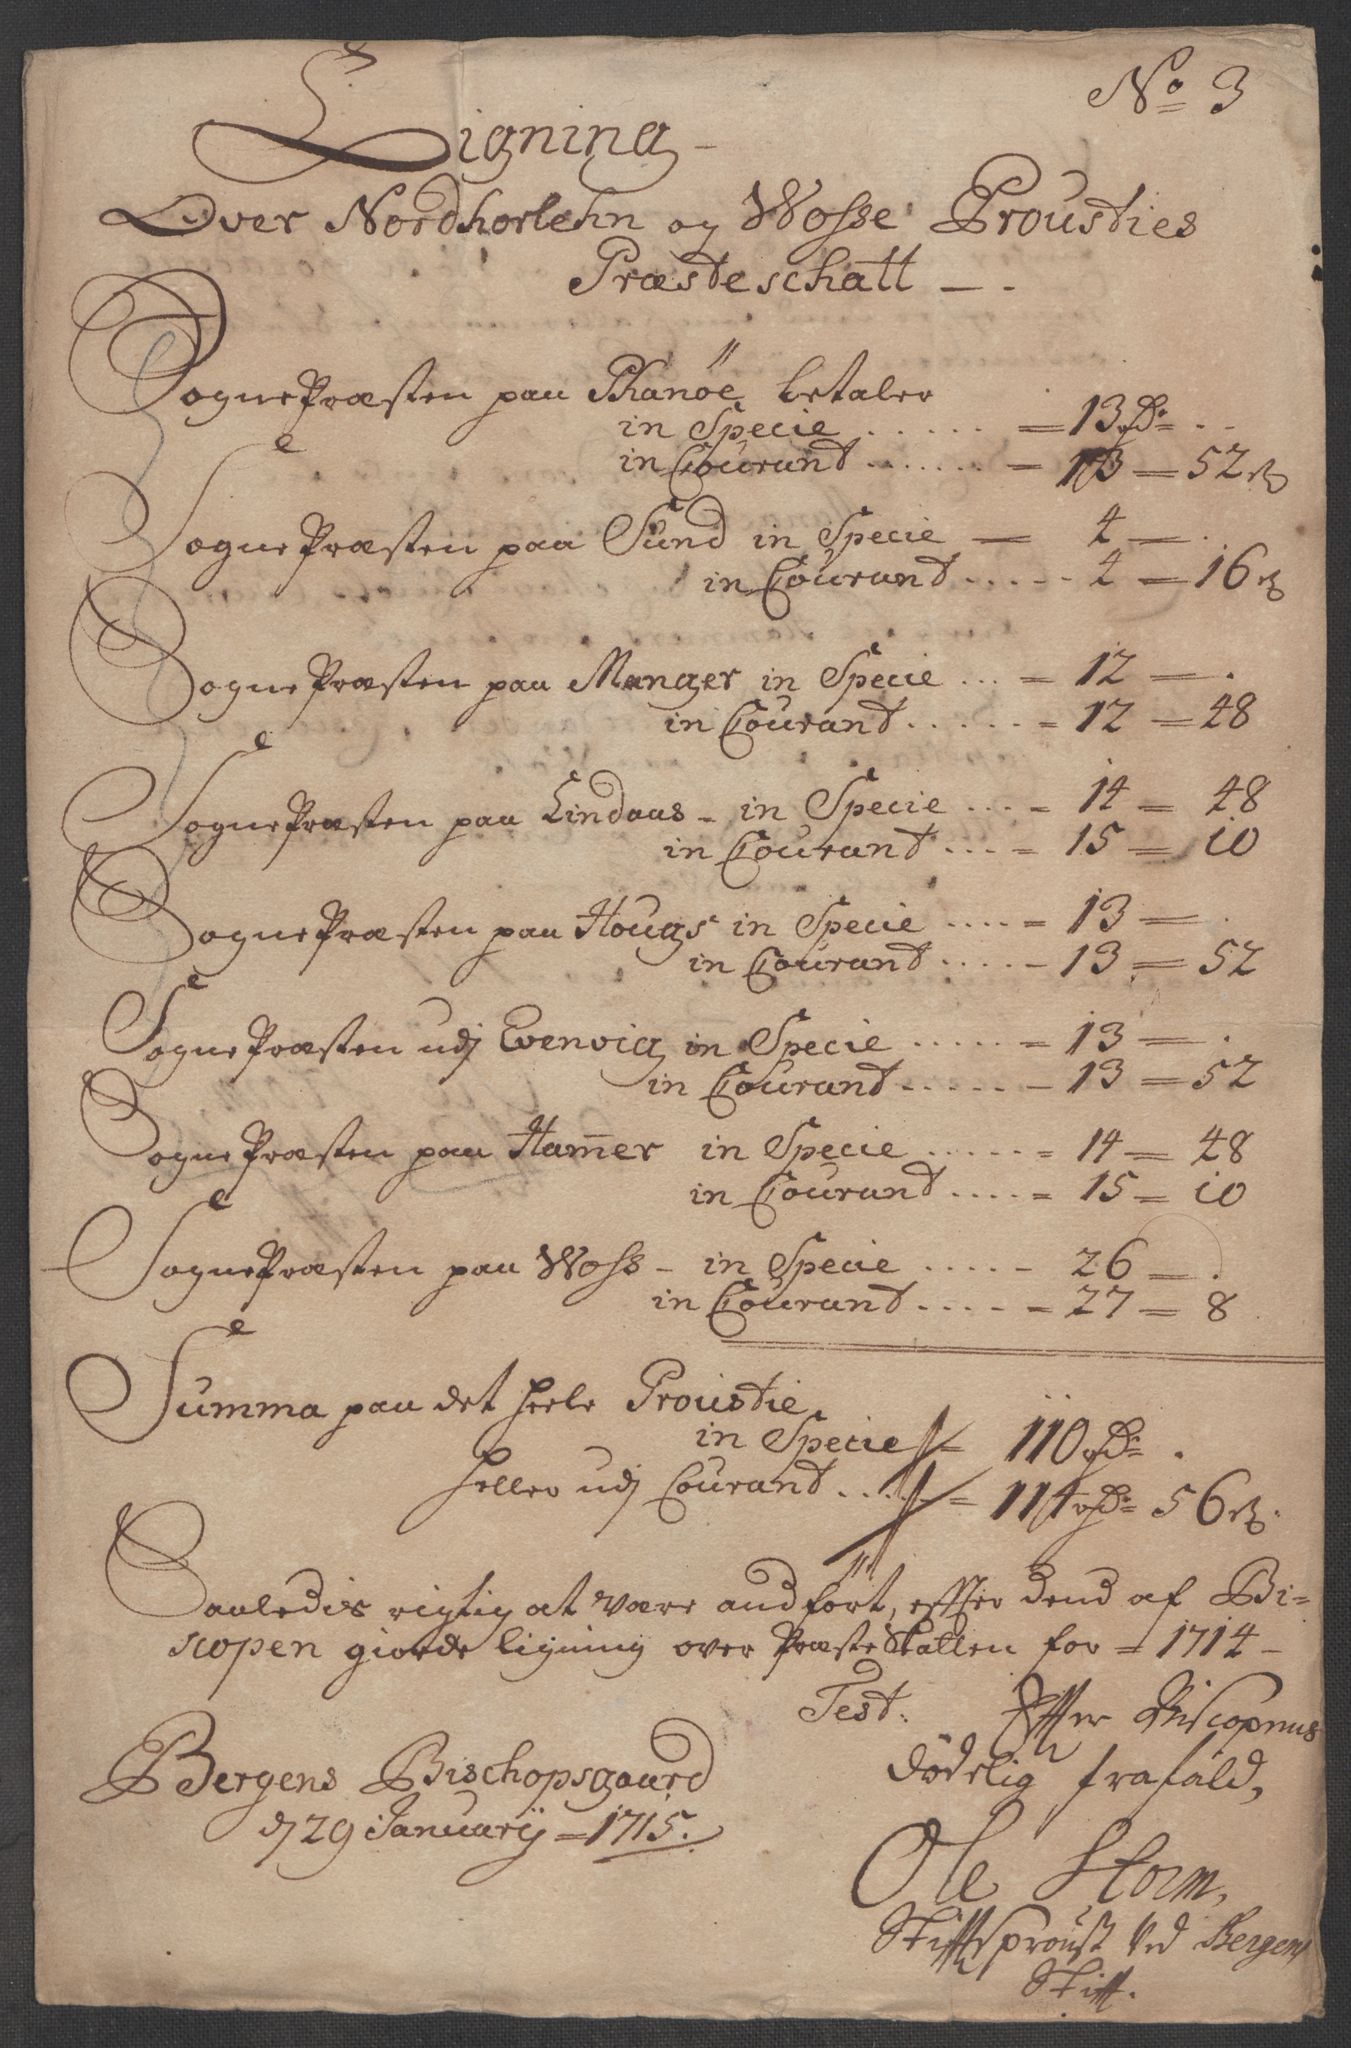 No 3
Ligning
Over Nordhorlehn og Wosse Prousties
Præsteschatt
Sogne Præsten paa Phanöe betaler
in Specie ..... = 13 Rdr ..
in Courant ...... = 13 = 52 ß
Sogne Præsten paa Sund in Specie = 4 = .
in Courant ..... 4 = 16 ß
Sogne Præsten paa Manger in Specie ... = 12 = .
in Courant ..... = 12 = 48
Sogne Præsten paa Lindaas - in Specie .... = 14 = 48
in Courant .... = 15 = 10
Sogne Præsten paa Hougs in Specie ..... = 13 = .
in Courant ..... = 13 = 52
Sogne Præsten udj Evenvig in Specie ..... = 13 = .
in Courant ..... = 13 = 52
Sogne Præsten paa Ham̄er in Specie ...... = 14 = 48
in Courant ..... = 15 = 10
Sogne Præsten paa Woss - in Specie ..... - 26 = .
in Courant ..... = 27 = 8
Summa paa det heele Proustie
in Specie = 110 Rdr .
heller udj Courant .... = 114 Rdr 56 ß.
Saaledis rigtig at være andfört, efter dend af Bi-
scopen giorde ligning over Præste Skatten for = 1714 -
Test. Efter Biscopens
dödelig frafald,
Bergens Bischopsgaard
d 29 Januarij = 1715.
Ole Storm,
Stiftsproust ved Bergens
Stift.